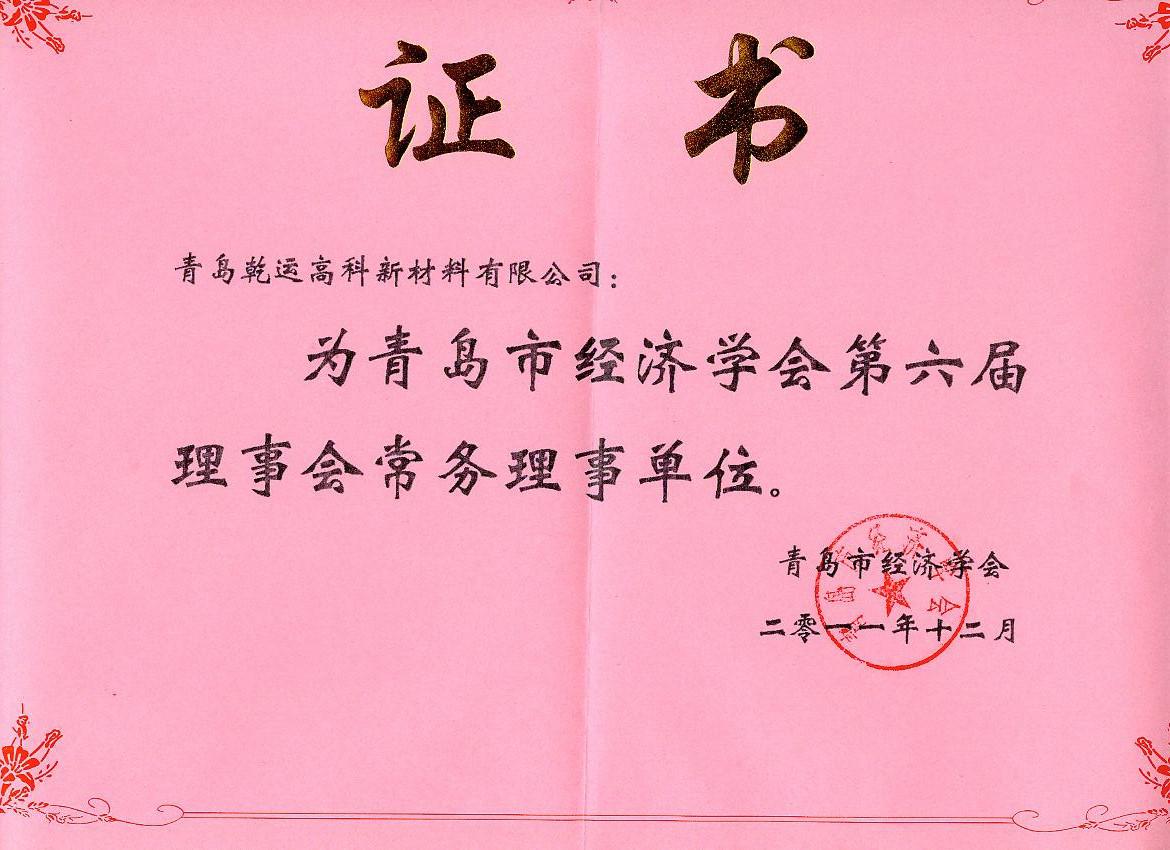 证书
青岛乾运高科新材料有限公司：
为青岛市经济学会第六届
理事会常务理事单位。
青岛市经济学会
二零一一年十二月